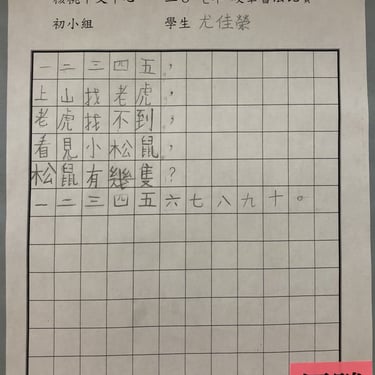 初小組 學生 尤佳縈
一二三四五，
上山找老虎，
老虎找不到，
看見小松鼠，
松鼠有幾隻？
一二三四五六七八九十。